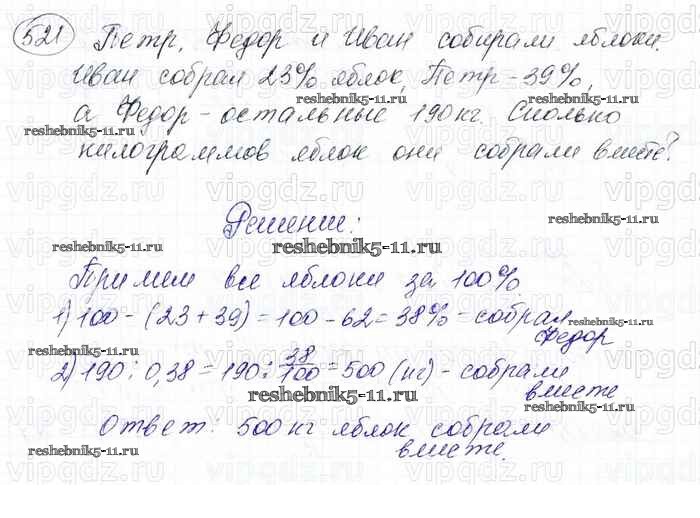 521 Петр, Федор и Иван собирали яблоки.
Иван собрал 23% яблок, Петр - 39%,
а Федор - остальные 190 кг. Сколько
килограммов яблок они собрали вместе?
Решение:
Примем все яблоки за 100%
1) 100 - (23 + 39) = 100 - 62 = 38% - собрал
Федор
2) 190 : 0,38 = 190 : 38/100 = 500 (кг) - собрали
вместе
Ответ: 500 кг яблок собрали
вместе.
reshebnik5-11.ru
vipgdz.ru